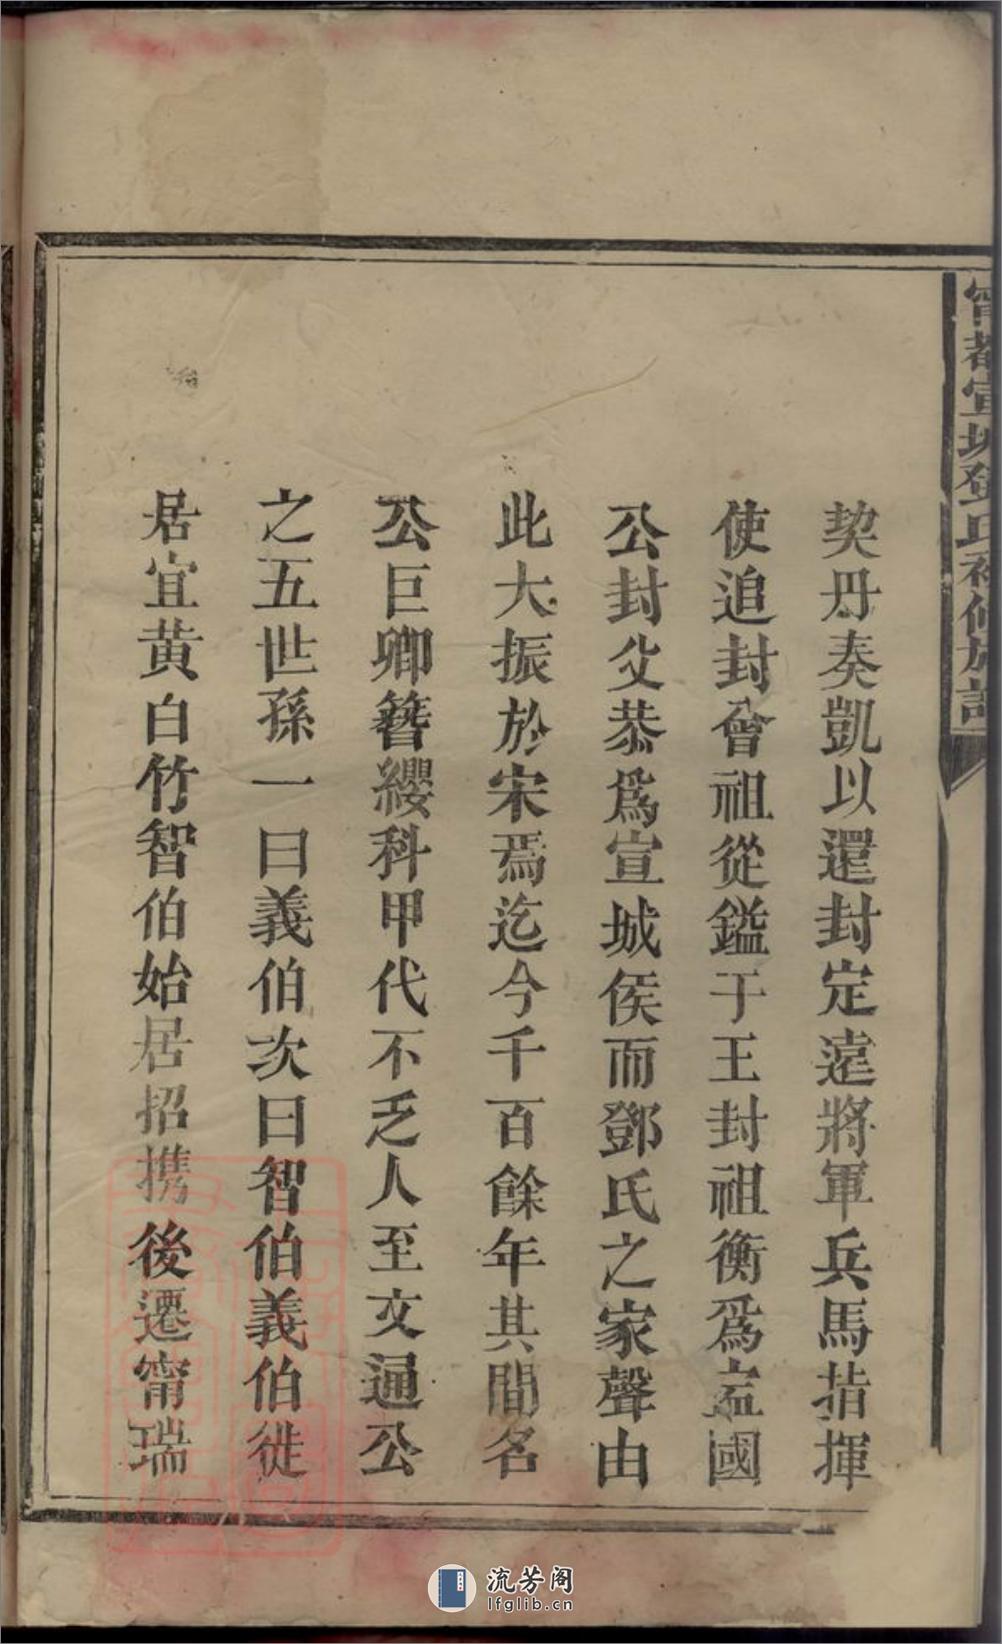 甯都宣城鄧氏補修族譜
契丹奏凱以還封定遠將軍兵馬指揮
使追封曾祖從鎰于王封祖衡爲孟國
公封父恭爲宣城侯而鄧氏之家聲由
此大振於宋焉迄今千百餘年其間名
公巨卿簪纓科甲代不乏人至文通公
之五世孫一曰義伯次曰智伯義伯徙
居宜黄白竹智伯始居招携後遷甯瑞
流芳阁
lfglib.cn